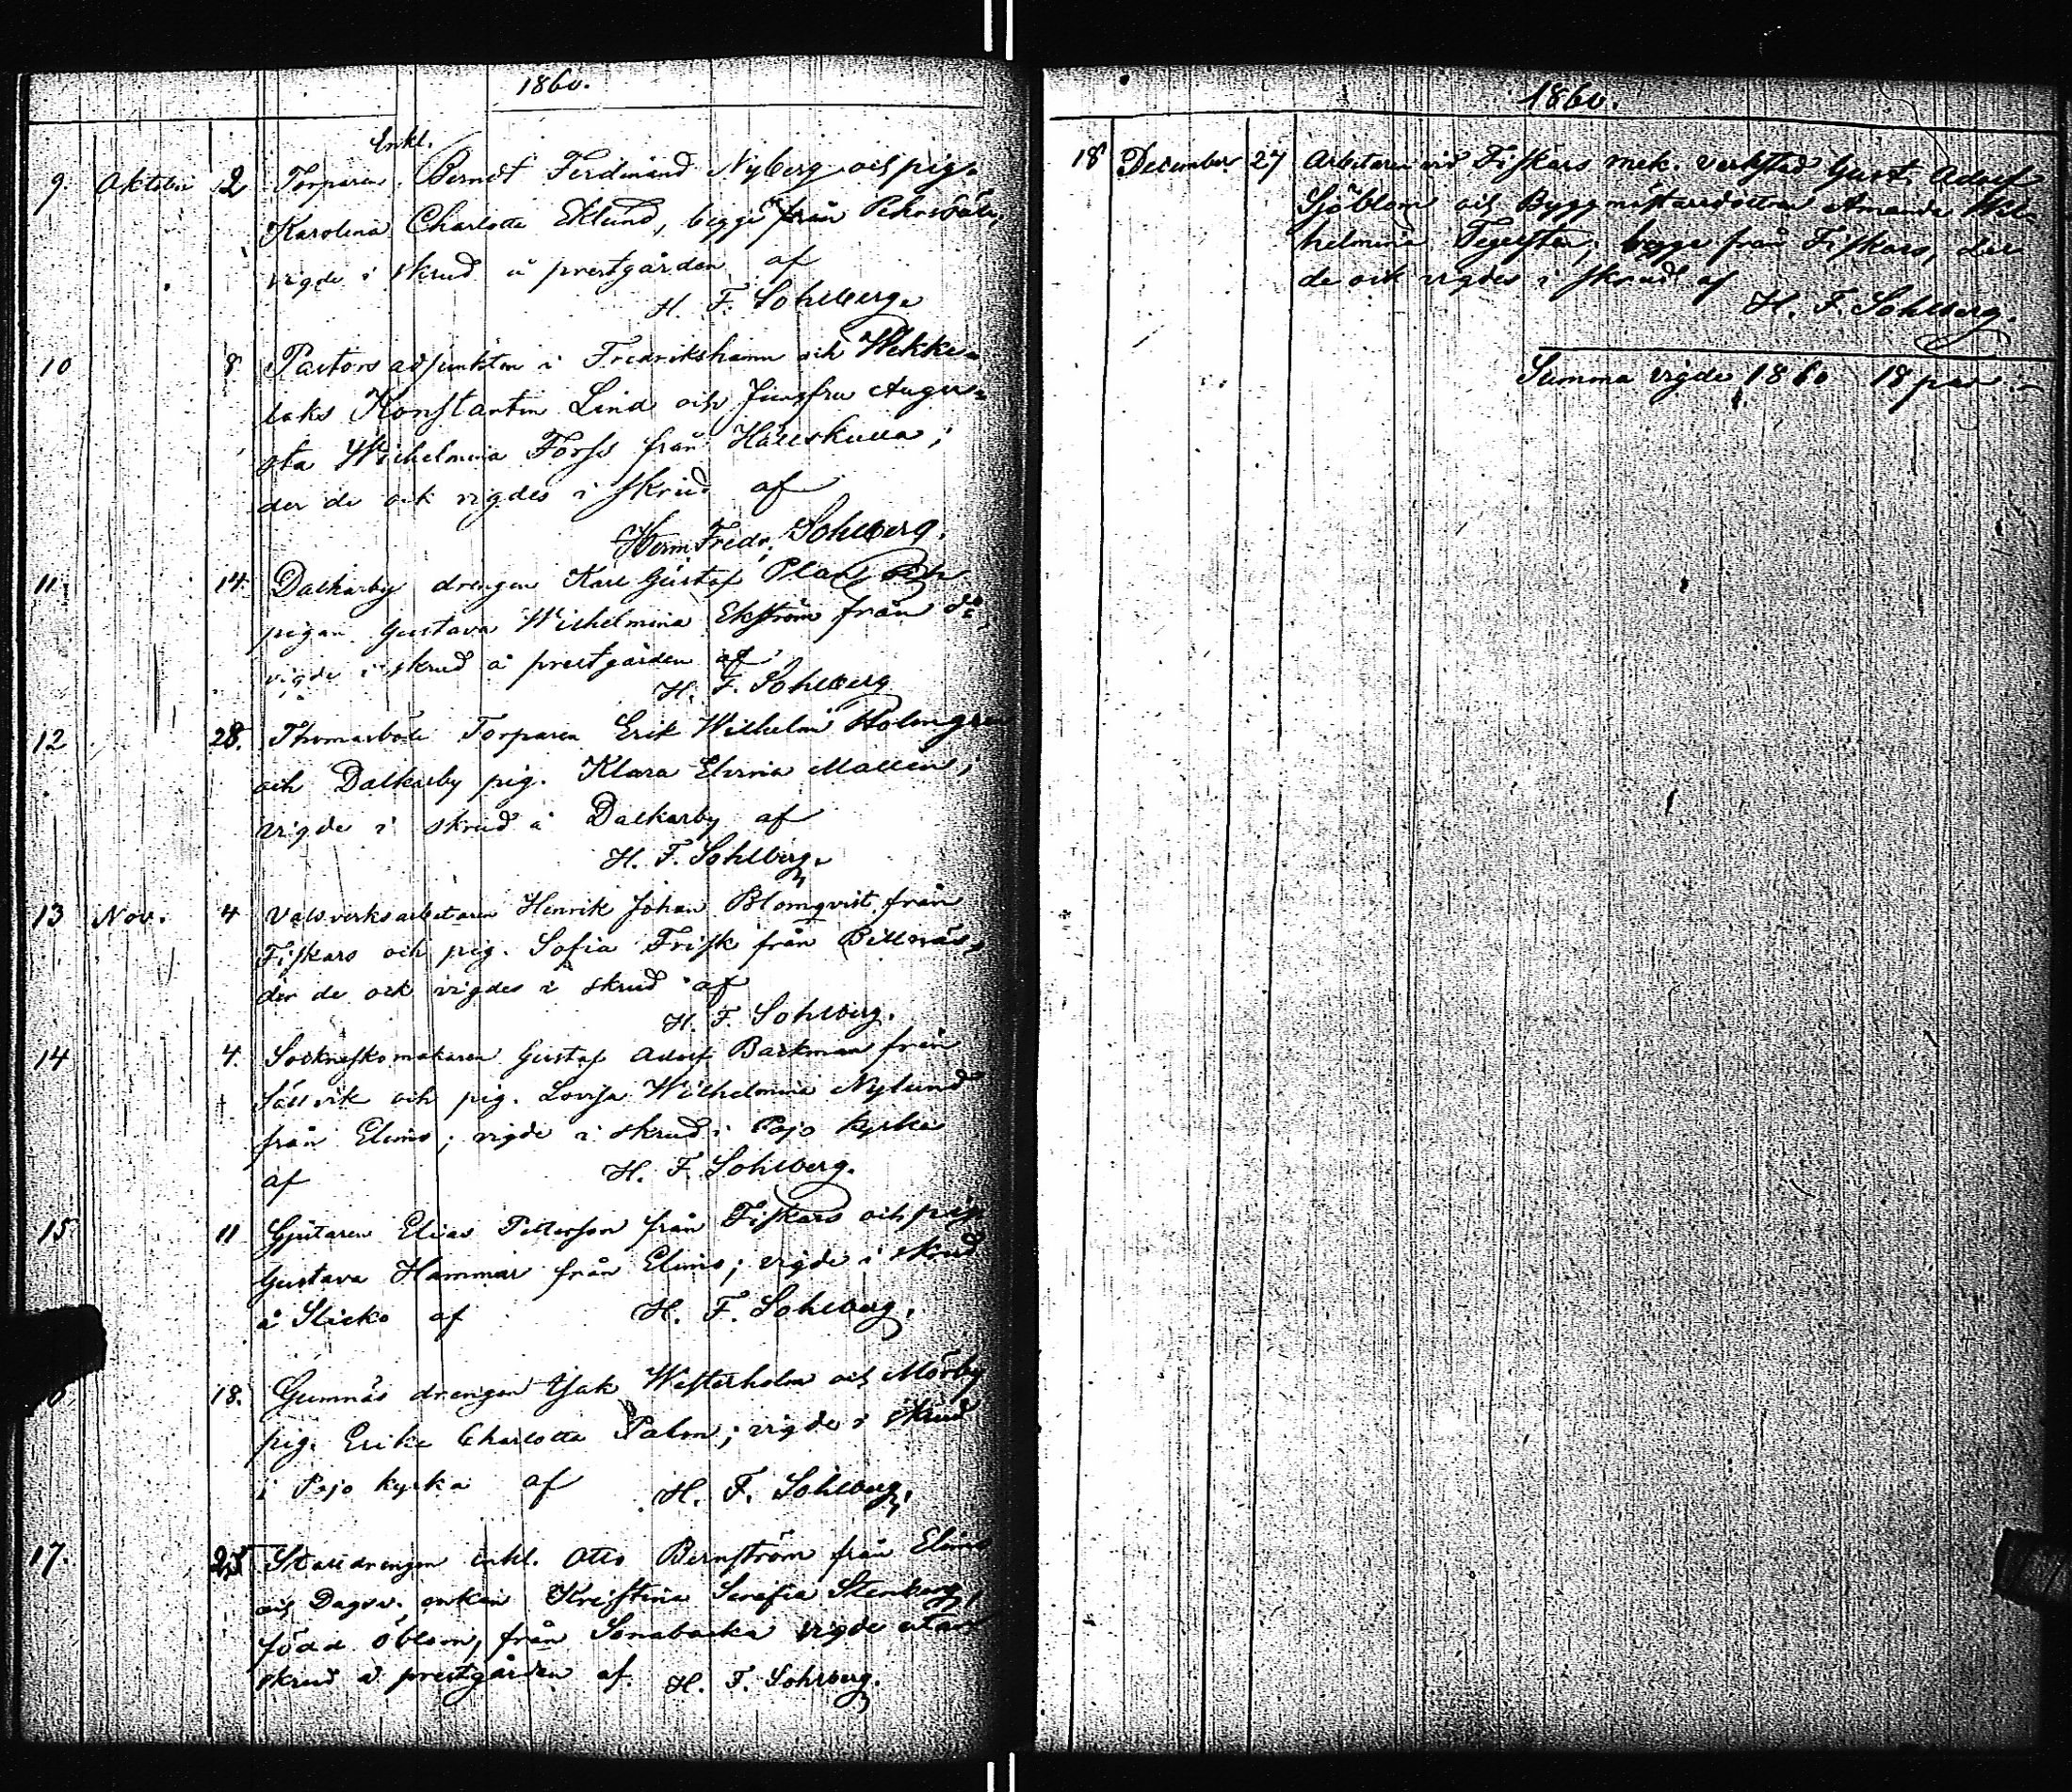 1860.
Enkl.
9. Oktober 2 Torparen Berndt Ferdinand Nyberg och pig.
Karolina Charlotta Eklund, begge från
vigde i skrud å prestgården af
H. F. Sohlberg.
10 8 Pastors adjunkten i Fredrikshamn och Wekke-
laks Konstantin Lind och Jungfru Augu-
sta Wilhelmina Forss från Hällskulla;
der de ock vigdes i skrud af
Herm. Fredr. Sohlberg.
11. 14. Dalkarby drengen Karl Gustaf Plan och
pigan Gustava Wilhelmina Ekström från do,
vigde i skrud å prestgården af
H. F. Sohlberg
12 28. Thomasböle Torparen Erik Wilhelm Holmgren
och Dalkarby pig. Klara Elvina Mallin;
vigde i skrud å Dalkarby af
H. F. Sohlberg.
13 Nov. 4 Valsverksarbetaren Henrik Johan Blomqvist från
Fiskars och pig. Sofia Frisk från Billnäs,
der de ock vigdes i skrud af
H. F. Sohlberg.
14 4. Socknskomakaren Gustaf Adolf Backman från
Sällvik och pig. Lovisa Wilhelmina Nylund
från Elimo; vigde i skrud i Pojo kyrka
af H. F. Sohlberg.
15 11 Gjutaren Elias Pettersson från Fiskars och pig.
Gustava Hammar från Elimo; vigde i skrud
å Slicko af H. F. Sohlberg.
18. Gumnäs drengen Isak Westerholm och Mörby
pig. Erika Charlotta Palm; vigde i skrud
i Pojo kyrka af H. F. Sohlberg.
17. 25 Stalldrengen enkl. Otto Bernström från Elimo
och Dagsv. enkan Kristina Serafia Stenberg,
född Öblom, från Sonabacka vigde utan
skrud å prestgården af H. F. Sohlberg.
1860.
18 December 27 Arbetaren vid Fiskars mek. verkstad Gust. Adolf
Sjöblom och Byggmästaredottren Amanda Wil-
helmina Tegelsten; begge från Fiskars, der
de ock vigdes i skrud af
H. F. Sohlberg.
Summa vigde 1860 18 par.